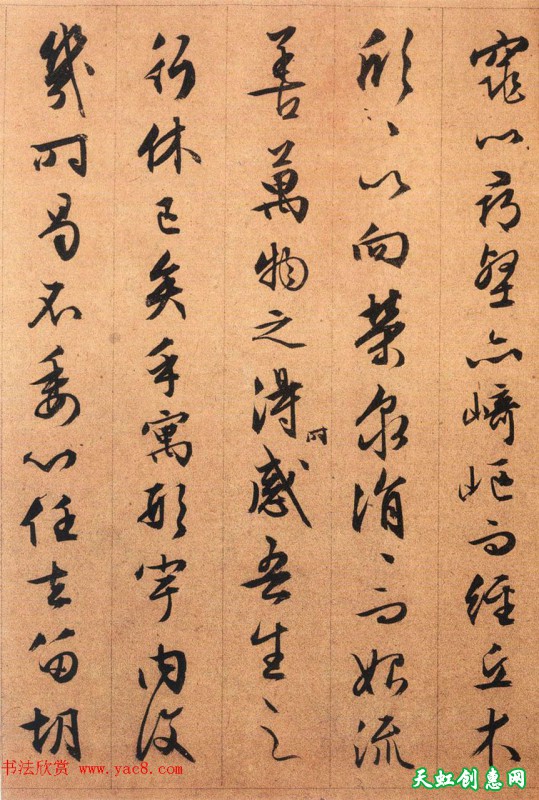 窕以尋壑亦崎嶇而經丘木
欣〻以向榮泉涓〻而始流
善萬物之得時感吾生之
行休已矣乎寓形宇内復
幾時曷不委心任去留胡
书法欣赏 www.yac8.com
天虹创惠网